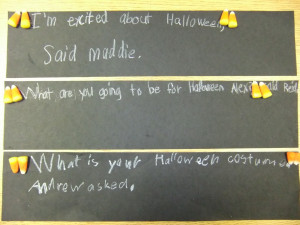 I'm excited about Halloween,
Said maddie.
What are you going to be for Halloween Alexis said Reid
What is your Halloween costume
Andrew asked.